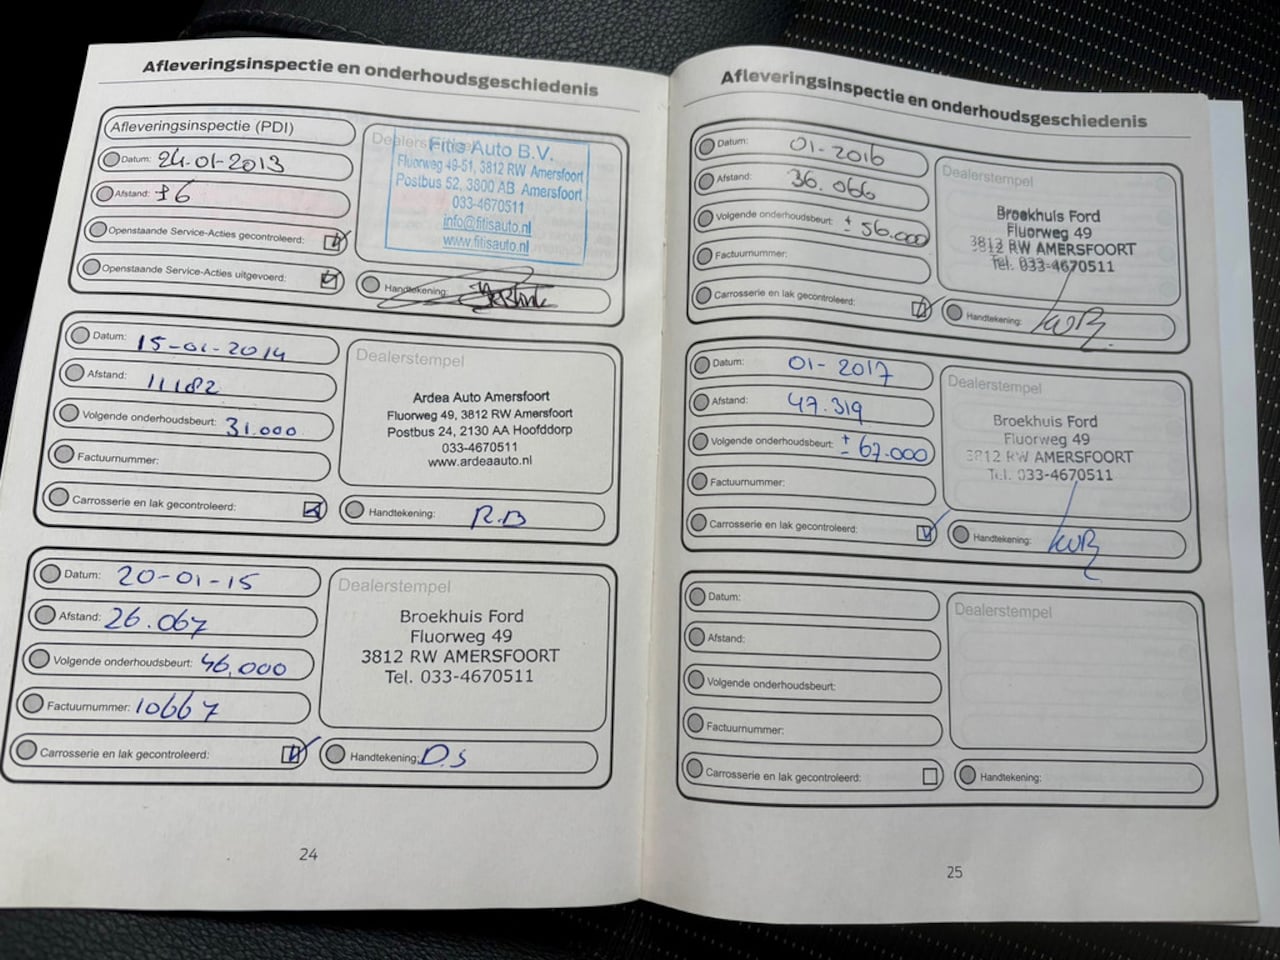 Afleveringsinspectie en onderhoudsgeschiedenis
Afleveringsinspectie (PDI)
Datum: 24-01-2013
Afstand: ±6
Openstaande Service-Acties gecontroleerd:
Openstaande Service-Acties uitgevoerd:
Dealerstempel
Fitis Auto B.V.
Fluorweg 49-51, 3812 RW Amersfoort
Postbus 52, 3800 AB Amersfoort
033-4670511
info@fitisauto.nl
www.fitisauto.nl
Handtekening:
Datum: 15-01-2014
Afstand: 11182
Volgende onderhoudsbeurt: 31.000
Factuurnummer:
Carrosserie en lak gecontroleerd:
Dealerstempel
Ardea Auto Amersfoort
Fluorweg 49, 3812 RW Amersfoort
Postbus 24, 2130 AA Hoofddorp
033-4670511
www.ardeaauto.nl
Handtekening: R.B
Datum: 20-01-15
Afstand: 26.067
Volgende onderhoudsbeurt: 46.000
Factuurnummer: 10667
Carrosserie en lak gecontroleerd:
Dealerstempel
Broekhuis Ford
Fluorweg 49
3812 RW AMERSFOORT
Tel. 033-4670511
Handtekening: D.S
24
Afleveringsinspectie en onderhoudsgeschiedenis
Datum: 01-2016
Afstand: 36.066
Volgende onderhoudsbeurt: ± 56.000
Factuurnummer:
Carrosserie en lak gecontroleerd:
Dealerstempel
Broekhuis Ford
Fluorweg 49
3812 RW AMERSFOORT
Tel. 033-4670511
Handtekening:
Datum: 01-2017
Afstand: 47.319
Volgende onderhoudsbeurt: ± 67.000
Factuurnummer:
Carrosserie en lak gecontroleerd:
Dealerstempel
Broekhuis Ford
Fluorweg 49
3812 RW AMERSFOORT
Tel. 033-4670511
Handtekening:
Datum:
Afstand:
Volgende onderhoudsbeurt:
Factuurnummer:
Carrosserie en lak gecontroleerd:
Dealerstempel
Handtekening:
25